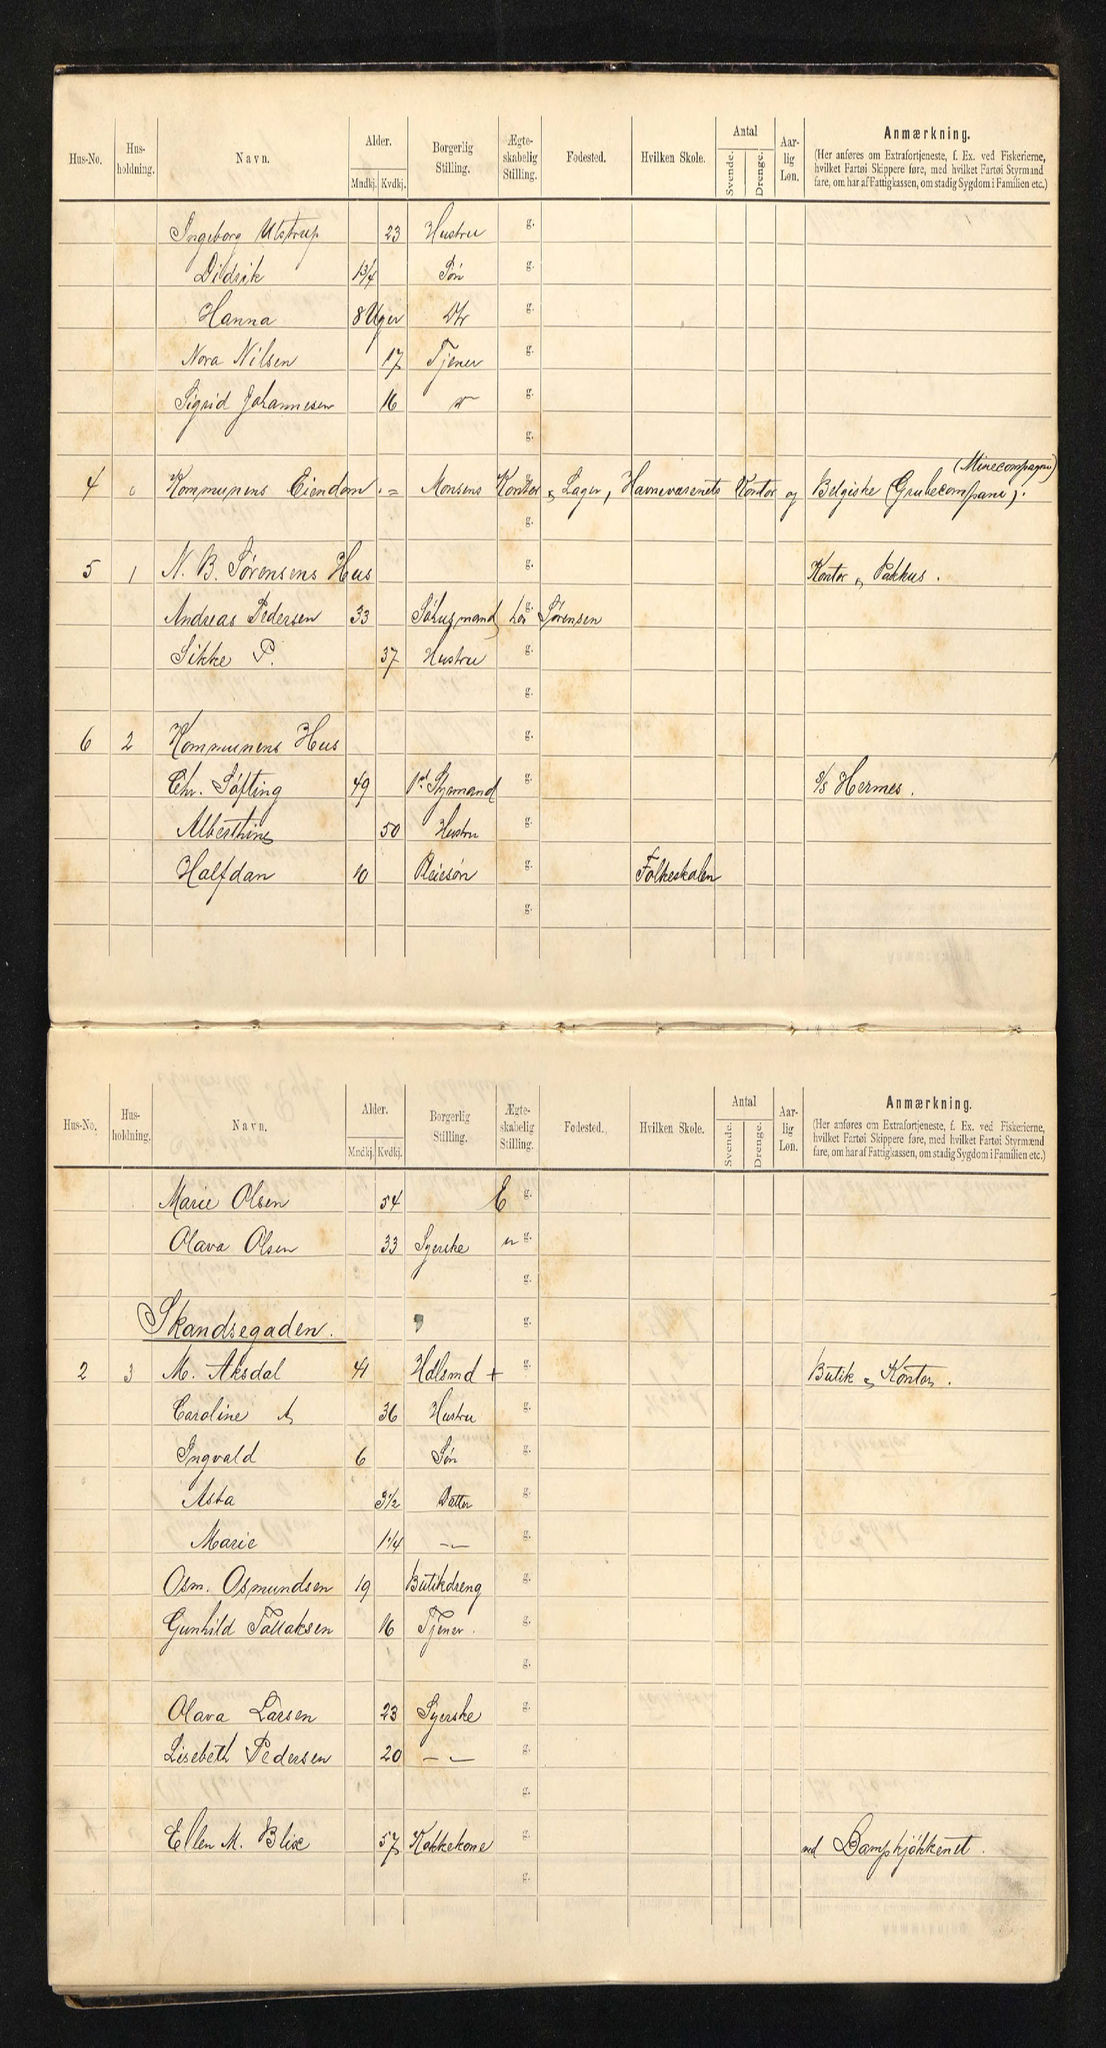 Hus-No. Hus-holdning. Navn. Alder. Mndkj. Kvdkj. Borgerlig Stilling. Ægte-skabelig Stilling. Fødested. Hvilken Skole. Antal Svende. Drenge. Aar-lig Løn. Anmærkning.
(Her anføres om Extrafortjeneste, f. Ex. ved Fiskerierne,
hvilket Fartøi Skippere føre, med hvilket Fartøi Styrmænd
fare, om har af Fattigkassen, om stadig Sygdom i Familien etc.)
Ingeborg Ulstrup 23 Hustru g.
Didrik 1 3/4 Søn g.
Hanna 8 Uger Dtr g.
Nora Nilsen 17 Tjener g.
Sigrid Johannesen 16 " g.
g.
(Minecompagni)
4 0 Kommunens Eiendom .= Monsens Kontor & Lager, Havnevæsenets Kontor og Belgiske (Grubecompani).
g.
5 1 N. B. Sørensens Hus g. Kontor & Pakhus.
Andreas Pedersen 33 hos g. Sørensen
Sikke P. 37 Hustru g.
g.
6 2 Kommunens Hus g.
Chr. Søfting 49 1ste Styrmand g. S/S Hermes.
Alberthine 50 Hustru g.
Halfdan 10 Pleiesøn g. Folkeskolen
g.
Hus-No. Hus-holdning. Navn. Alder. Mndkj. Kvdkj. Borgerlig Stilling. Ægte-skabelig Stilling. Fødested. Hvilken Skole. Antal Svende. Drenge. Aar-lig Løn. Anmærkning.
(Her anføres om Extrafortjeneste, f. Ex. ved Fiskerierne,
hvilket Fartøi Skippere føre, med hvilket Fartøi Styrmænd
fare, om har af Fattigkassen, om stadig Sygdom i Familien etc.)
Marie Olsen 54 E g.
Olava Olsen 33 Syerske u g.
g.
Skandsegaden. g.
2 3 M. Aksdal 41 Hdlsmd + g. Butik & Kontor.
Caroline A 36 Hustru g.
Ingvald 6 Søn g.
Asta 3 1/2 Datter g.
Marie 1 1/4 -"- g.
Osm. Osmundsen 19 Butikdreng g.
Gunhild Tollaksen 16 Tjener. g.
g.
Olava Larsen 23 Syerske g.
Lisebeth Pedersen 20 -"- g.
g.
Ellen M. Blix 57 Kokkekone g. ved Dampkjøkkenet.
g.